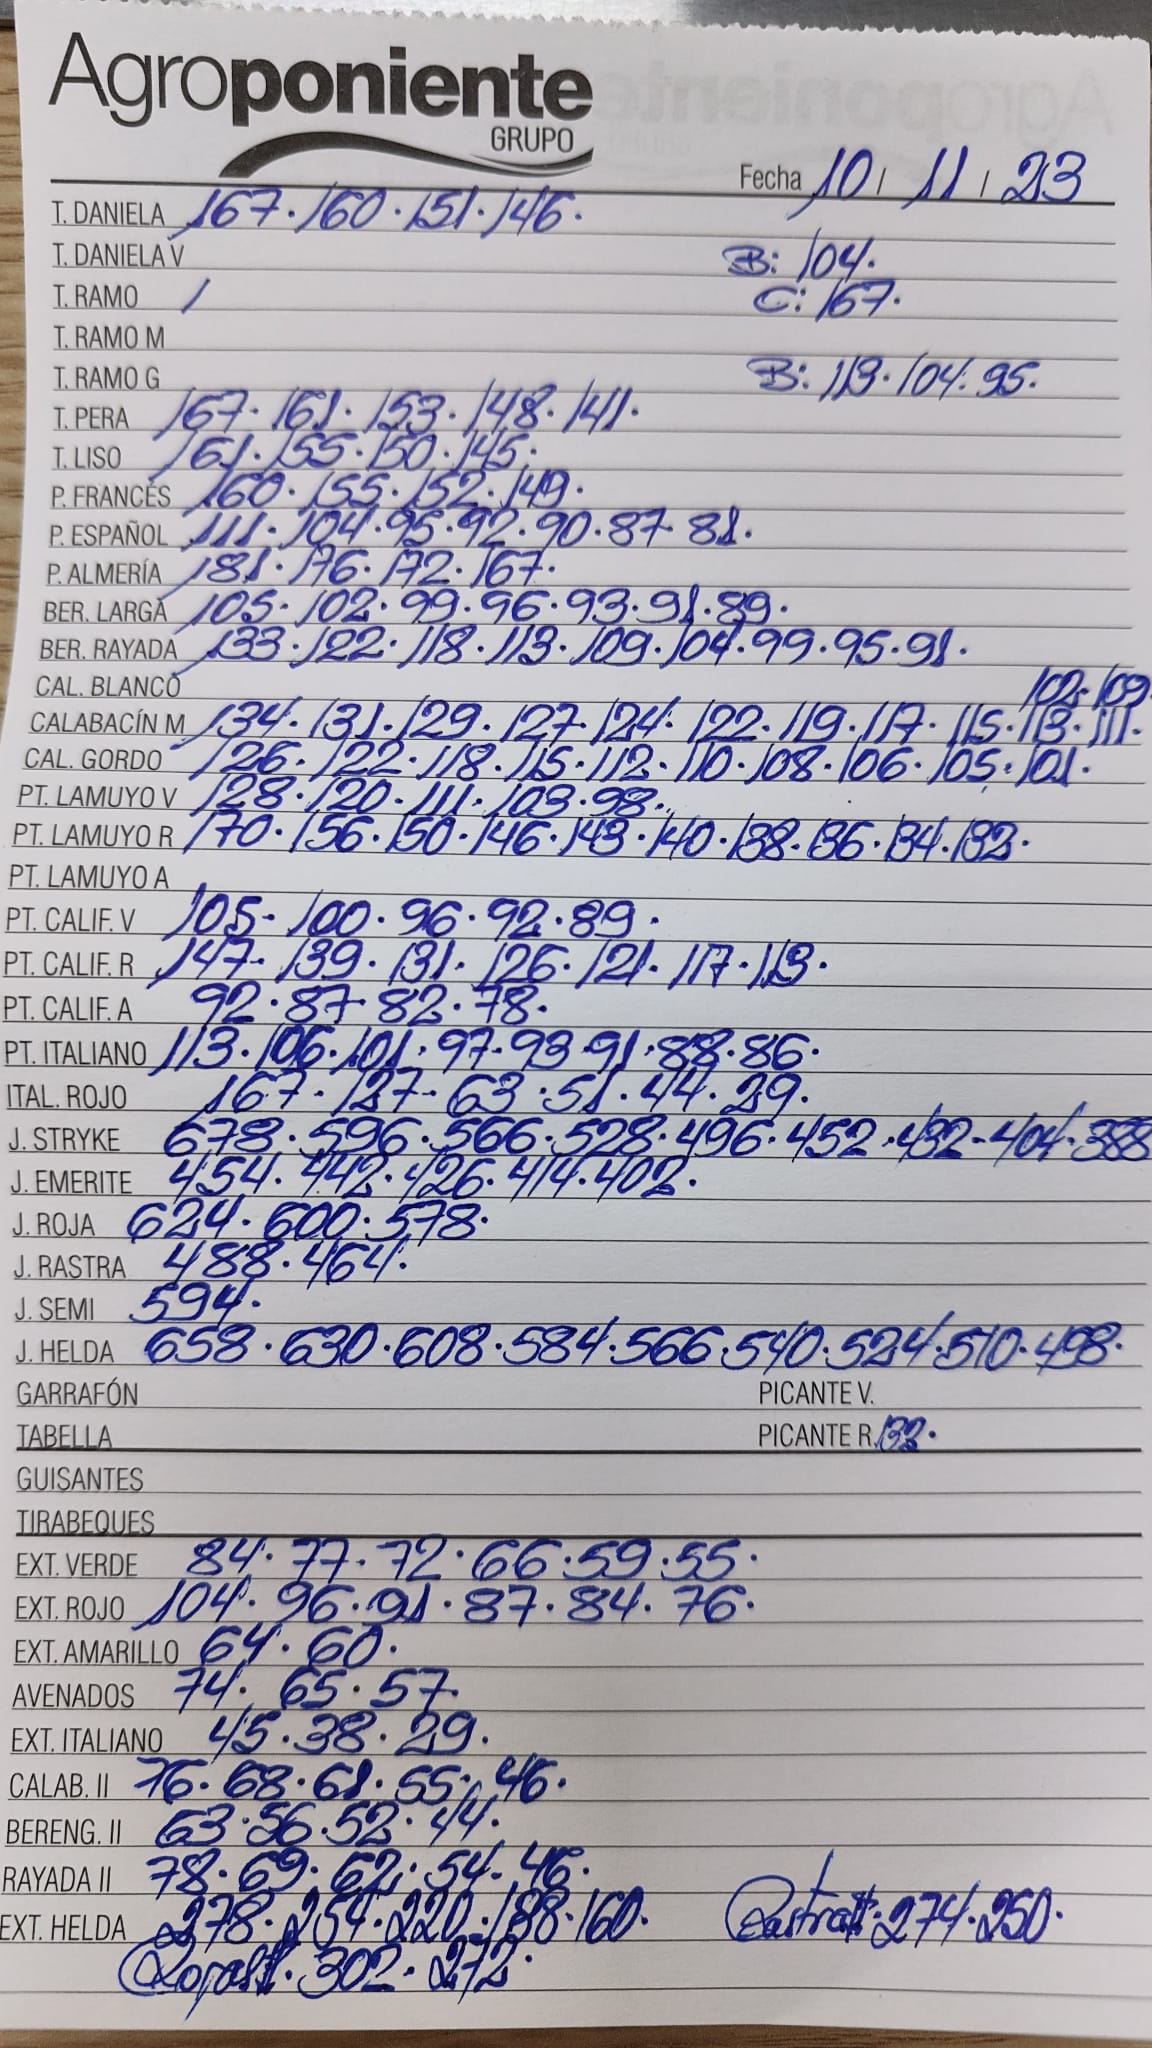 Agroponiente
GRUPO
Fecha 10 / 11 / 23
T. DANIELA 167. 160. 151. 146.
T. DANIELA V B: 104.
T. RAMO / C: 167.
T. RAMO M
T. RAMO G B: 113. 104. 95.
T. PERA 167. 161. 153. 148. 141.
T. LISO 161. 155. 150. 145.
P. FRANCÉS 160. 155. 152. 149.
P. ESPAÑOL 111. 104. 95. 92. 90. 87. 81.
P. ALMERÍA 181. 176. 172. 167.
BER. LARGA 105. 102. 99. 96. 93. 91. 89.
BER. RAYADA 133. 122. 118. 113. 109. 104. 99. 95. 91.
CAL. BLANCO 102. 109
CALABACÍN M 134. 131. 129. 127. 124. 122. 119. 117. 115. 113. 111.
CAL. GORDO 126. 122. 118. 115. 112. 110. 108. 106. 105. 101.
PT. LAMUYO V 128. 120. 111. 103. 98.
PT. LAMUYO R 170. 156. 150. 146. 143. 140. 138. 136. 134. 132.
PT. LAMUYO A
PT. CALIF. V 105. 100. 96. 92. 89.
PT. CALIF. R 147. 139. 131. 126. 121. 117. 113.
PT. CALIF. A 92. 87. 82. 78.
PT. ITALIANO 113. 106. 101. 97. 93. 91. 88. 86.
ITAL. ROJO 167. 127. 63. 51. 44. 29.
J. STRYKE 678. 596. 566. 528. 496. 452. 432. 404. 388
J. EMERITE 454. 442. 426. 414. 402.
J. ROJA 624. 600. 578.
J. RASTRA 488. 464.
J. SEMI 594.
J. HELDA 658. 630. 608. 584. 566. 540. 524. 510. 498.
GARRAFÓN PICANTE V.
TABELLA PICANTE R. 132.
GUISANTES
TIRABEQUES
EXT. VERDE 84. 77. 72. 66. 59. 55.
EXT. ROJO 104. 96. 91. 87. 84. 76.
EXT. AMARILLO 64. 60.
AVENADOS 74. 65. 57.
EXT. ITALIANO 45. 38. 29.
CALAB. II 76. 68. 61. 55. 46.
BERENG. II 63. 56. 52. 44.
RAYADA II 78. 69. 62. 54. 46.
EXT. HELDA 278. 254. 220. 188. 160. RastraII. 274. 250.
RojaII. 302. 272.